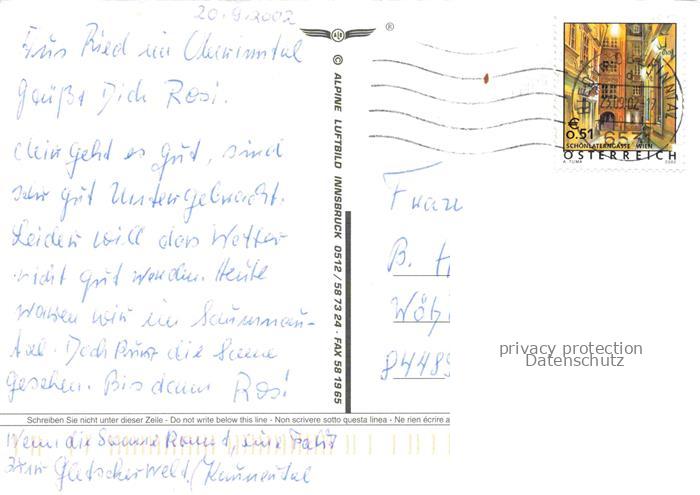 20.9.2002
Aus Ried im Oberinntal
grüßt Dich Rosi.
Mir geht es gut, sind
sehr gut Untergebracht.
Leider will das Wetter
nicht gut werden. Heute
waren wir im Samnau-
tal. Doch kurz die Sonne
gesehen. Bis dann Rosi
Schreiben Sie nicht unter dieser Zeile - Do not write below this line - Non scrivere sotto questa linea - Ne rien écrire a
Wenn die Sonne kommt, eine Fahrt
zur Gletscherwelt / Kaunertal
© ALPINE LUFTBILD INNSBRUCK 0512 / 58 73 24 · FAX 58 19 65
®
€
0.51
SCHÖNLATERNGASSE WIEN
ÖSTERREICH
A. TUMA 2002
Frau
B. H
Wöhr
84489
privacy protection
Datenschutz